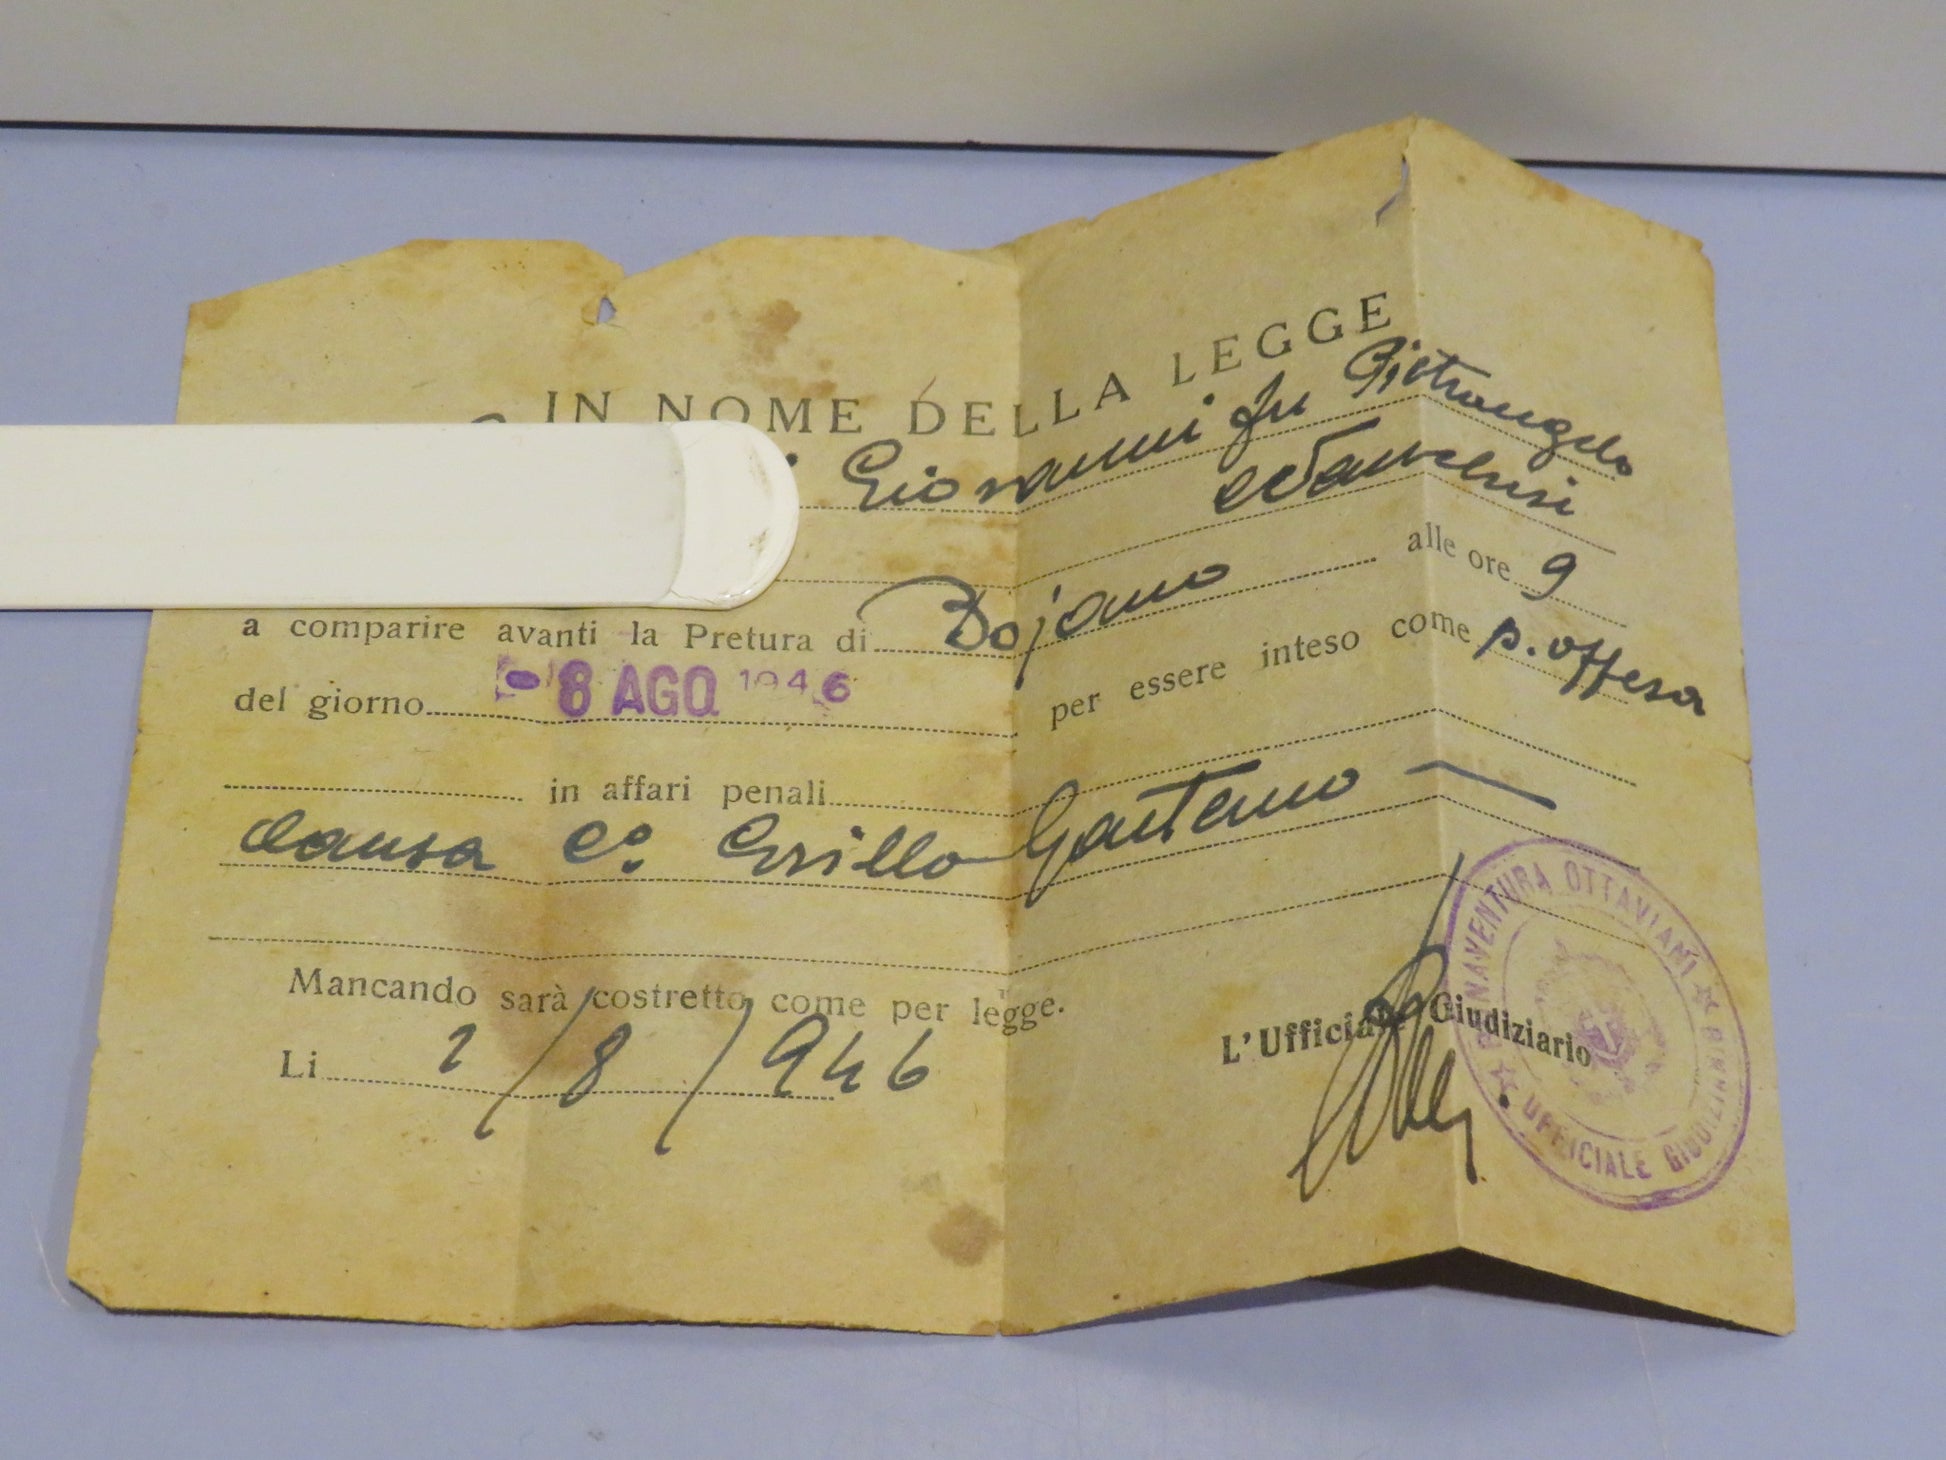 IN NOME DELLA LEGGE
Giovanni fu Pietrangelo
a comparire avanti la Pretura di Bojano alle ore 9
del giorno - 8 AGO 1946 per essere inteso come p. offesa
in affari penali
causa Co Grillo Gaetano
Mancando sarà costretto come per legge.
Li 2/8/946
L'Ufficiale Giudiziario
BONAVENTURA OTTAVIANI
UFFICIALE GIUDIZ